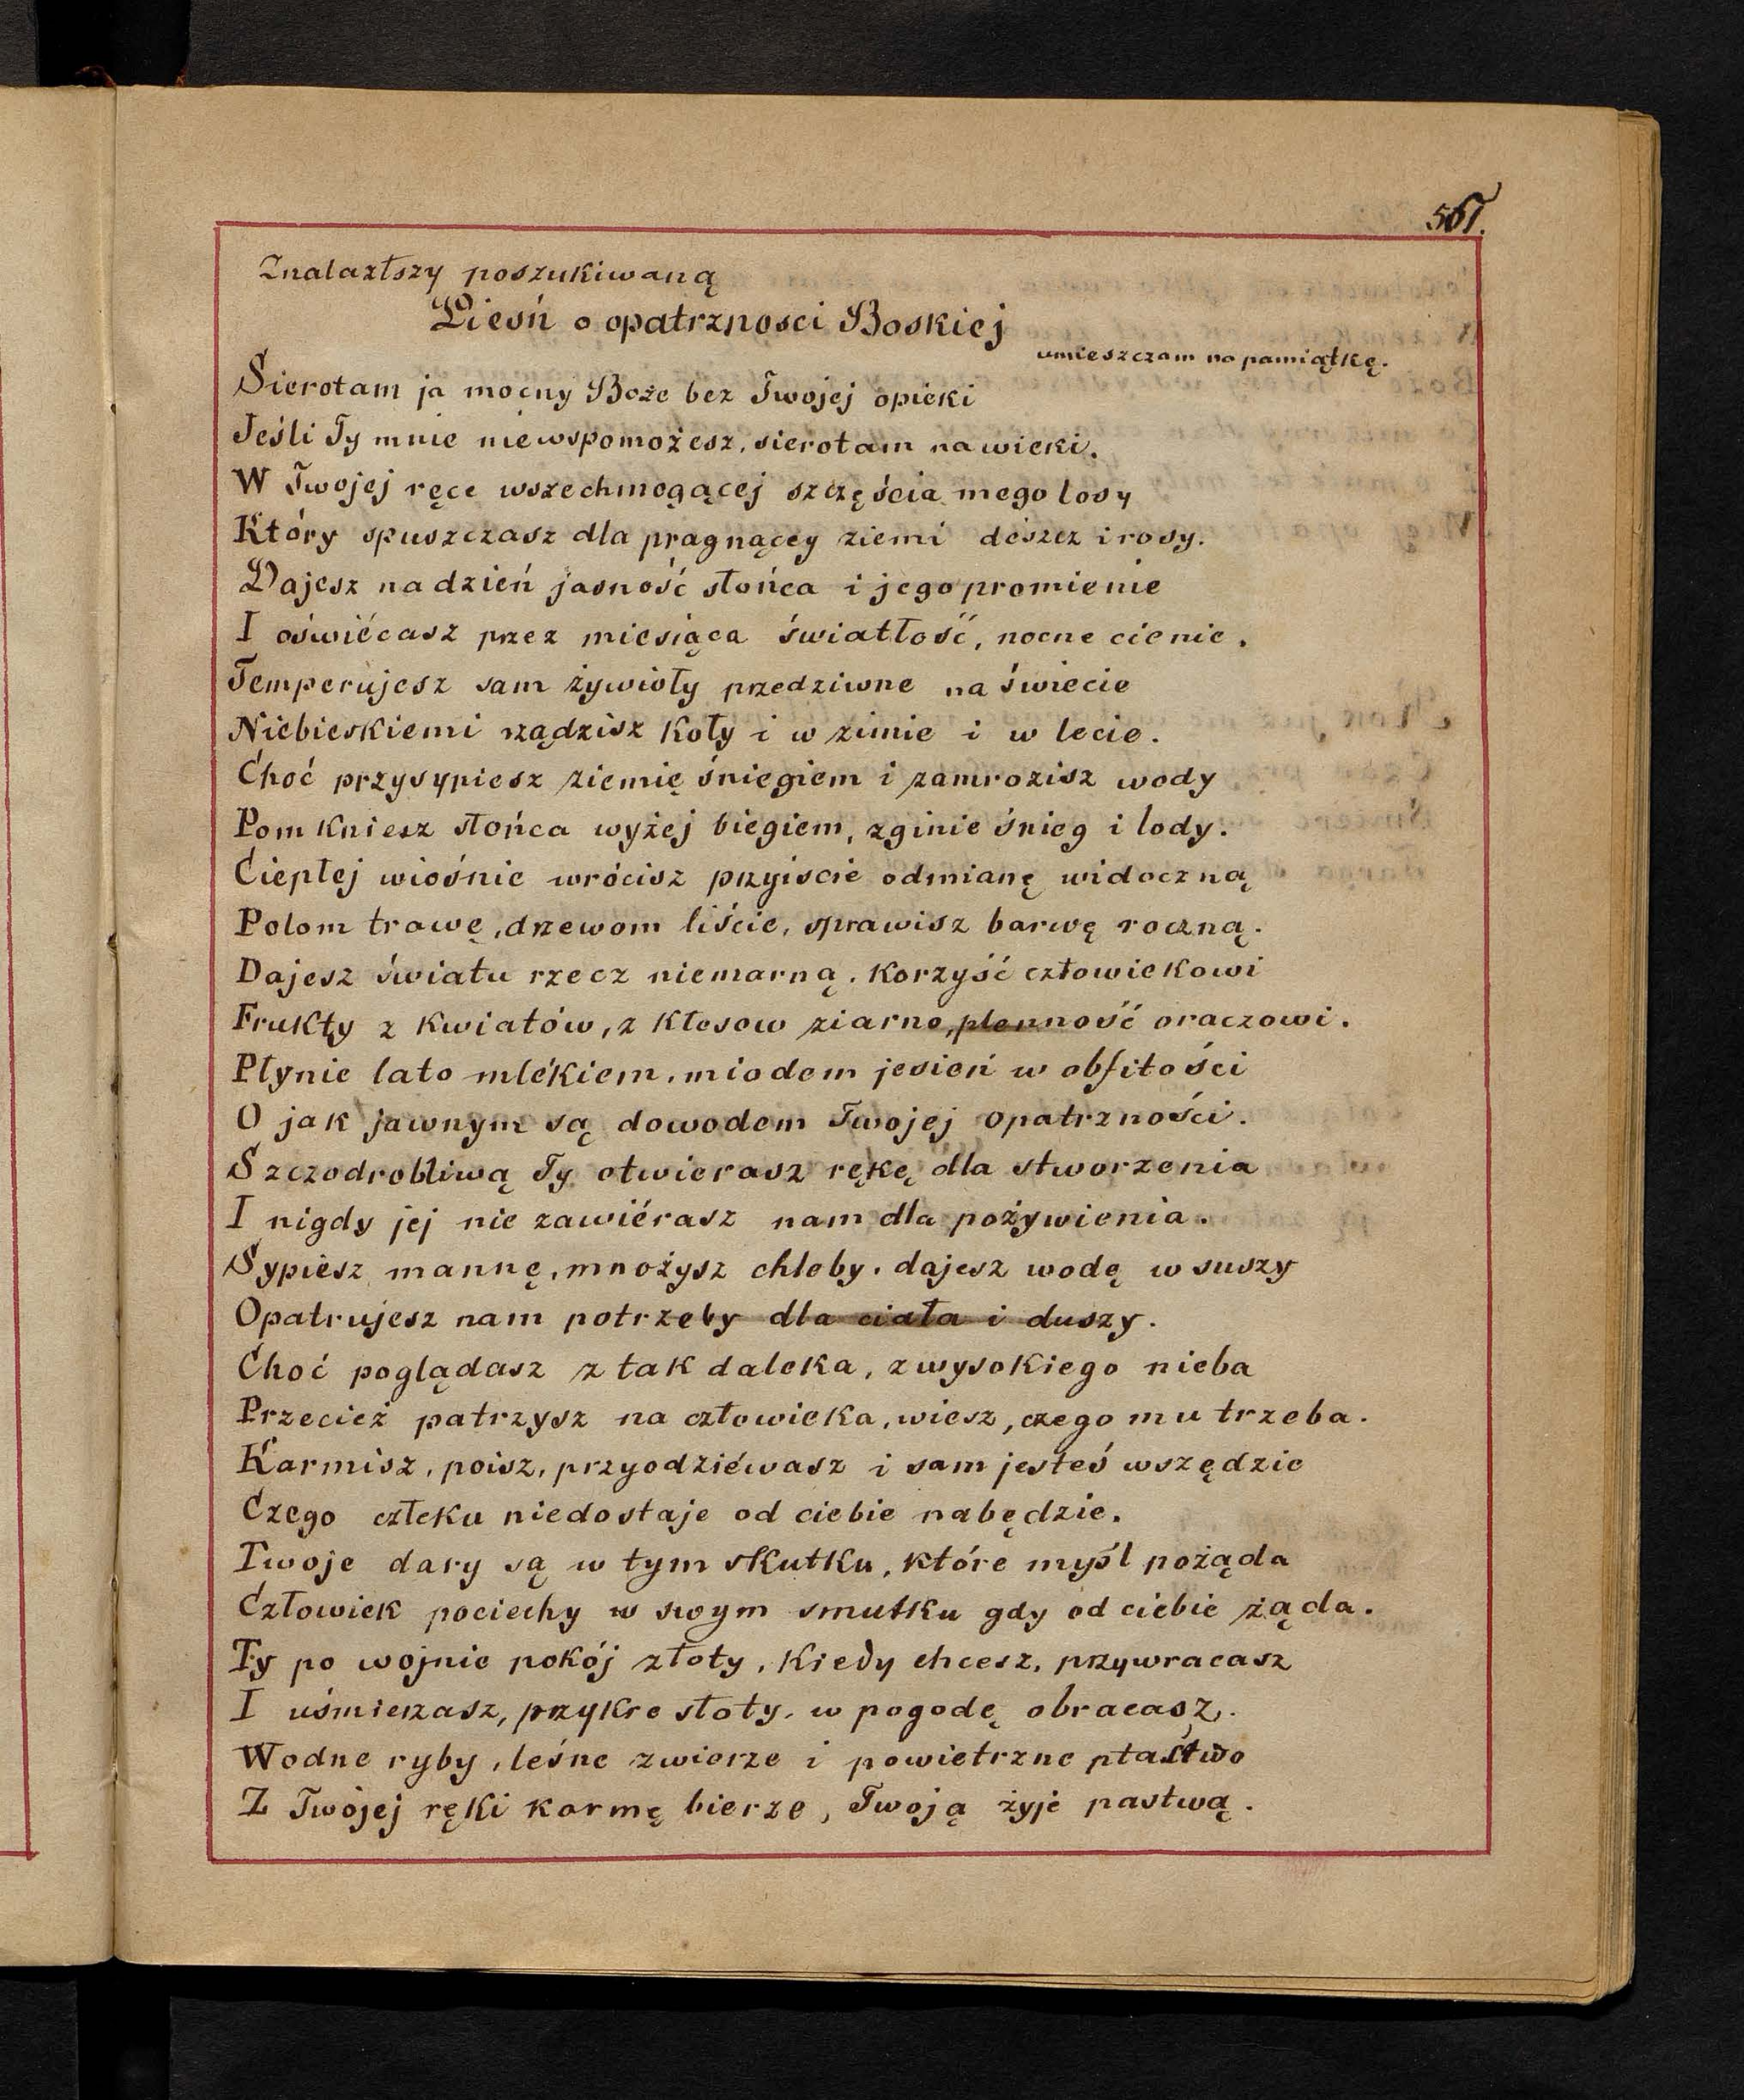 567.
Znalazłszy poszukiwaną
Pieśń o opatrznosci Boskiej
umieszczam na pamiątkę.
Sierotam ja mocny Boże bez Twojej opieki
Jeśli Ty mnie niewspomożesz, sierotam na wieki.
W Twojej ręce wszechmogącej szczęścia mego losy
Który spuszczasz dla pragnącey ziemi deszcz i rosy.
Dajesz na dzień jasność słońca i jego promienie
I oświécasz przez miesiąca światłość, nocne cienie.
Temperujesz sam żywioły przedziwne na świecie
Niebieskiemi rządzisz koły i w zimie i w lecie.
Choć przysypiesz ziemię śniegiem i zamrozisz wody
Pomkniesz słońca wyżej biegiem, zginie śnieg i lody.
Ciepłej wiośnie wrócisz przyiście odmianę widoczną
Polom trawę, drzewom liście, sprawisz barwę roczną.
Dajesz światu rzecz niemarną, korzyść człowiekowi
Frukty z kwiatów, z kłosow ziarno, plenność oraczowi.
Płynie lato mlékiem, miodem jesień w obfitości
O jak jawnym są dowodem Twojej opatrzności.
Szczodrobliwą Ty otwierasz rękę dla stworzenia
I nigdy jej nie zawiérasz nam dla pożywienia.
Sypiesz mannę, mnożysz chleby, dajesz wodę w suszy
Opatrujesz nam potrzeby dla ciała i duszy.
Choć poglądasz z tak daleka, z wysokiego nieba
Przecież patrzysz na człowieka, wiesz, czego mu trzeba.
Karmisz, poisz, przyodziéwasz i sam jesteś wszędzie
Czego człeku niedostaje od ciebie nabędzie.
Twoje dary są w tym skutku, które myśl pożąda
Człowiek pociechy w swym smutku gdy od ciebie żąda.
Ty po wojnie pokój złoty, kiedy chcesz, przywracasz
I uśmierzasz, przykre słoty, w pogodę obracasz.
Wodne ryby, leśne zwierze i powietrzne ptastwo
Z Twojej ręki karmę bierze, Twoją żyje pastwą.